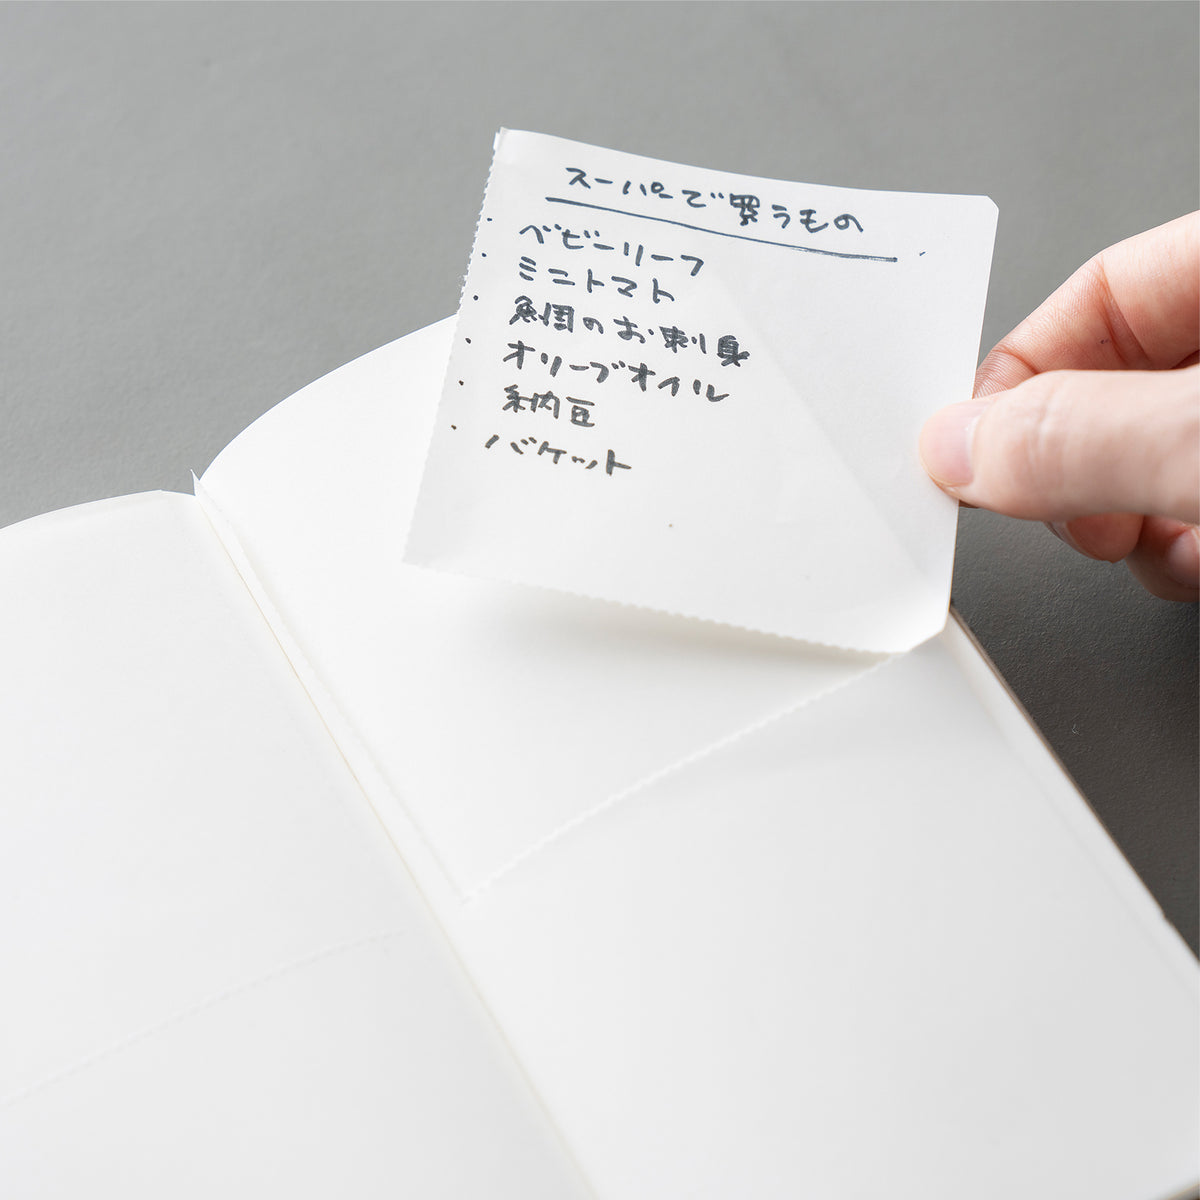 スーパーで買うもの
・ベビーリーフ
・ミニトマト
・鯛のお刺身
・オリーブオイル
・納豆
・バケット